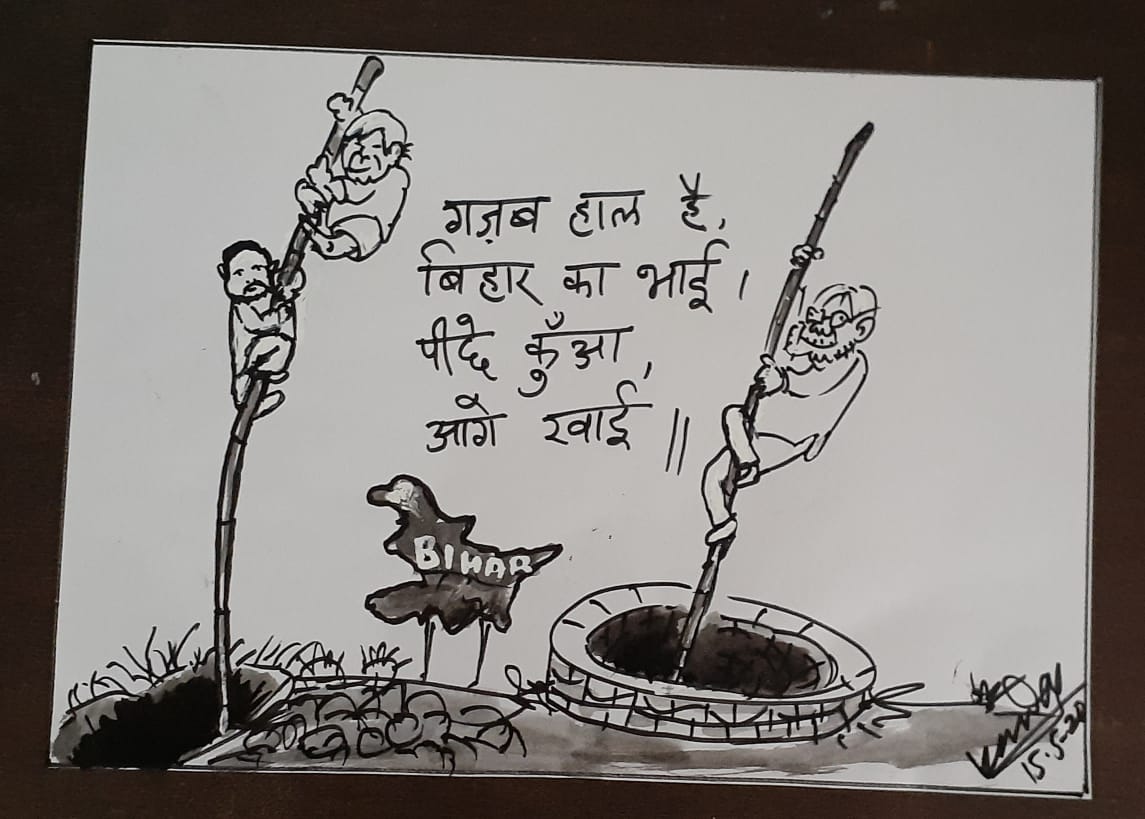 गज़ब हाल है,
बिहार का भाई।
पीछे कुँआ,
आगे खाई॥
BIHAR
15-5-20